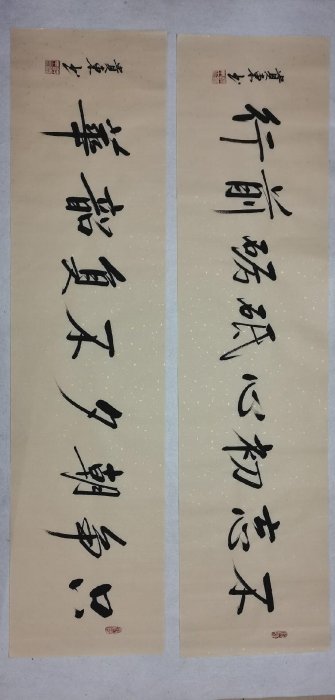 不忘初心砥砺前行
只争朝夕不負韶華